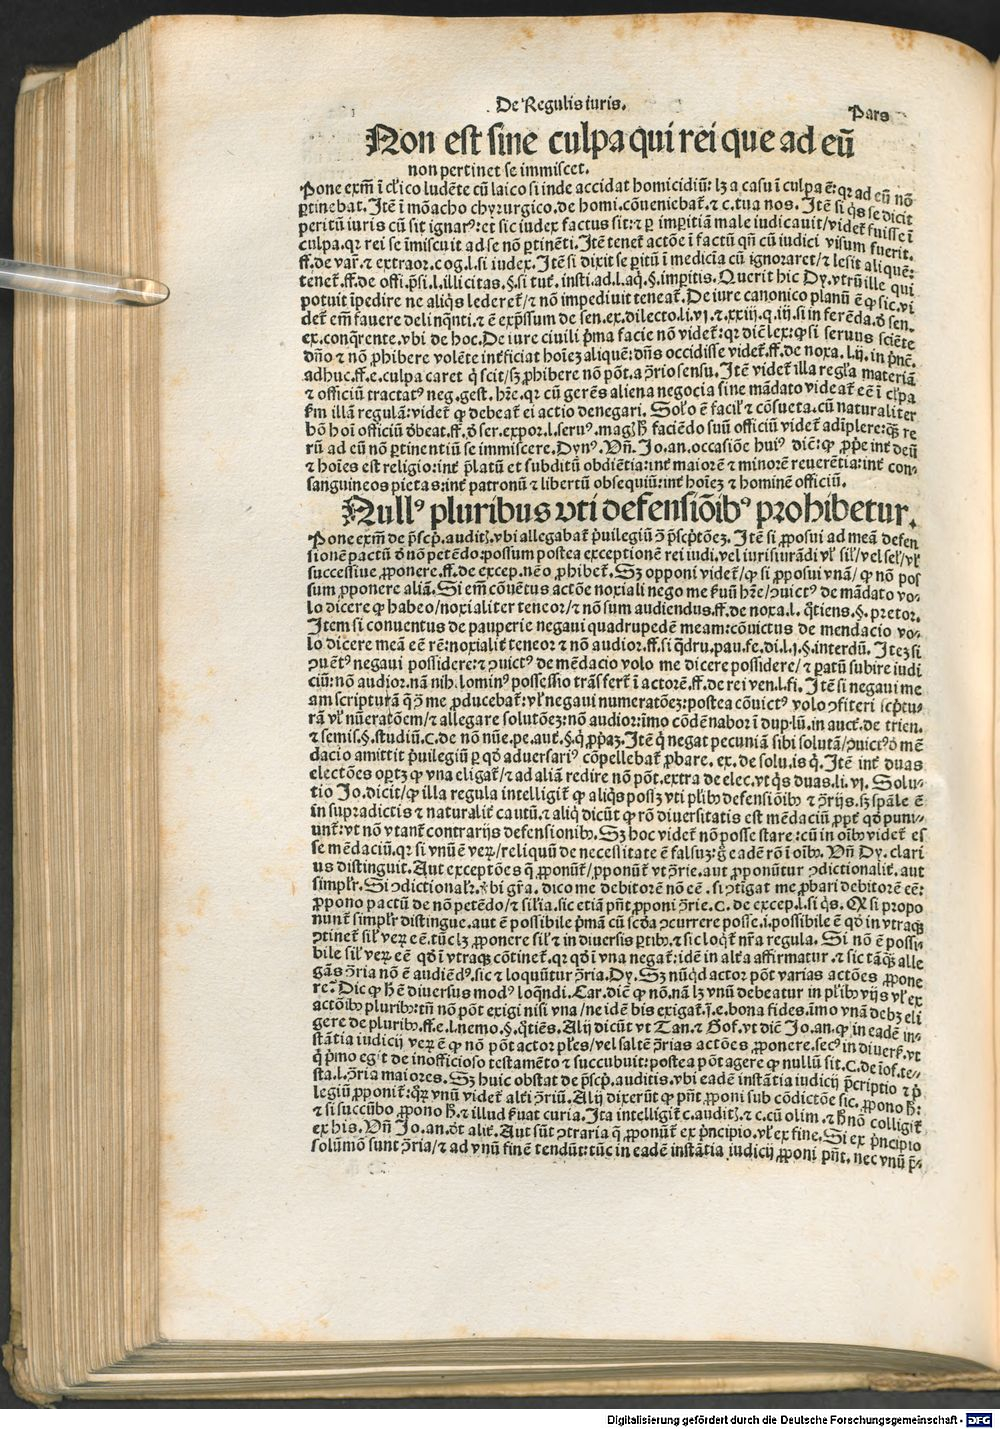 De Regulis iuris.
Pars
Non est sine culpa qui rei que ad eũ
non pertinet se immiscet.
Pone exm̃ ĩ cl'ico ludẽte cũ laico si inde accidat homicidiũ: lꝫ a casu ĩ culpa ẽ: qꝛ ad eũ nõ
ꝑtinebat. Itẽ ĩ mõacho chyrurgico. de homi. cõueniebat̃. ⁊ c. tua nos. Itẽ si q̃s se dicit
peritũ iuris cũ sit ignarꝰ: et sic iudex factus sit: ⁊ ꝑ imperitiã male iudicauit/ videt̃ fuisse ĩ
culpa. qꝛ rei se ĩmiscuit ad se nõ ꝑtinẽti. Itẽ tenet̃ actõe ĩ factũ qñ cũ iudici visum fuerit.
ff. de var̃. ⁊ extraor. cog. l. si iudex. Itẽ si dixit se peritũ ĩ medicia cũ ignoraret/ ⁊ lesit aliquẽ:
tenet̃. ff. de offi. p̃si. l. illicitas. §. si tut̃. insti. ad. l. aq̃. §. impitis. Querit hic Dy. vtrũ ille qui
potuit ĩpedire ne aliq̃s lederet̃/ ⁊ nõ impediuit teneat̃. De iure canonico planũ ẽ ꝙ sic. vi
det̃ em̃ fauere delinq̃nti. ⁊ ẽ exp̃ssum de sen. ex. dilecto. li. vi. ⁊ .xxiij. q. iij. si in ferẽda. ⁊ de sen.
ex. conq̃rente. vbi de hoc. De iure ciuili p̃ma facie nõ videt̃: qꝛ diẽ lex: ꝙ si seruus sciẽte
dño ⁊ nõ ꝓhibere volẽte int̃ficiat hoĩez aliquẽ: dñs occidisse videt̃. ff. de noxa. l. ij. in p̃nc̃.
adhuc. ff. e. culpa caret q̃ scit/ sꝫ ꝓhibere nõ põt. a ↄ̃rio sensu. Itẽ videt̃ illa regl'a materiã
⁊ officiũ tractatꝰ neg. gest. hr̃e. qꝛ cũ gerẽs aliena negocia sine mãdato videat̃ eẽ ĩ cl'pa
km̃ illã regulã: videt̃ ꝙ debeat̃ ei actio denegari. Sol'o ẽ facil' ⁊ cõsueta. cũ naturaliter
hõ hoĩ officiũ debeat. ff. de ser. expor. l. seruꝰ. mag̃ faciẽdo suũ officiũ videt̃ adĩplere: q̃ꝫ re
rũ ad eũ nõ ꝑtinentiũ se immiscere. Dynꝰ. Vñ. Jo. an. occasiõe huiꝰ diẽ: ꝙ ꝓp̃e int̃ deũ
⁊ hoĩes est religio: int̃ p̃latũ et subditũ obdiẽtia: int̃ maiorẽ ⁊ minorẽ reuerẽtia: int̃ con-
sanguineos pietas: int̃ patronũ ⁊ libertũ obsequiũ: int̃ hoĩez ⁊ hominẽ officiũ.
Nullꝰ pluribus vti defensiõibꝰ prohibetur.
Pone exm̃ de p̃scp̃. audit̃. vbi allegabat̃ p̃uilegiũ ↄ̃ p̃scp̃tõez. Itẽ si ꝓposui ad meã defen
sionẽ pactũ de nõ petẽdo: possum postea exceptionẽ rei iudi. vel iurisiurãdi vl' sil'/ vel sel'/ vl'
successiue ꝓponere. ff. de excep. nẽo ꝓhibet̃. Sꝫ opponi videt̃/ ꝙ si ꝓposui vnã/ ꝙ nõ pos
sum ꝓponere aliã. Si em̃ cõuẽtus actõe noxiali nego me seruũ hr̃e/ ↄuictꝰ de mãdato vo-
lo dicere ꝙ habeo/ noxialiter teneor/ ⁊ nõ sum audiendus. ff. de noxa. l. q̃tiens. §. pretor.
Item si conuentus de pauperie negaui quadrupedẽ meam: cõuictus de mendacio vo-
lo dicere meã eẽ rẽ: noxialit̃ teneor ⁊ nõ audior. ff. si q̃dru. pau. fe. di. l. j. §. interdũ. Itez si
ↄuẽtꝰ negaui possidere: ⁊ ↄuictꝰ de mẽdacio volo me dicere possidere/ ⁊ paratũ subire iudi
ciũ: nõ audior. nã nih. lominꝰ possessio trãsfert̃ ĩ actorẽ. ff. de rei ven. l. fi. Itẽ si negaui me
am scripturã q̃ ↄ̃ me ꝓducebat̃: vl' negaui numeratõez: postea cõuictꝰ volo ↄfiteri scp̃tu-
rã vl' nũeratõem/ ⁊ allegare solutõez: nõ audior: ĩmo cõdẽnabor ĩ duplũ. in auct̃. de trien.
⁊ semis. §. studiũ. C. de nõ nũe. pe. aut̃. §. q̃ ꝓp̃aꝫ. Itẽ q̃ negat pecuniã sibi solutã/ ↄuictꝰ de mẽ
dacio amittit p̃uilegiũ ꝑ qd̃ aduersariꝰ cõpellebat̃ ꝓbare. ex. de solu. is q̃. Itẽ int̃ duas
electões oꝑtꝫ ꝙ vna eligat̃/ ⁊ ad aliã redire nõ põt. extra de elec. vt q̃s duas. li. vi. Solu-
tio Jo. dicit/ ꝙ illa regula intelligit̃ ꝙ aliq̃s possꝫ vti pl'ibꝰ defensiõibꝰ ⁊ ↄ̃rijs. sꝫ sp̃ale ẽ
in supradictis ⁊ naturalit̃ cautũ. ⁊ aliq̃ dicũt ꝙ rõ diuersitatis est mẽdaciũ ꝓpt̃ qd̃ puni-
unt̃: vt nõ vtant̃ contrarijs defensionibꝰ. Sꝫ hoc videt̃ nõ posse stare: cũ in oĩbꝰ videt̃ es
se mẽdaciũ. qꝛ si vnũ ẽ veꝝ/ reliquũ de necessitate ẽ falsuꝫ: g̃ eadẽ rõ ĩ oĩbꝰ. Vñ Dy. clari
us distinguit. Aut exceptões q̃ ꝓponũt̃/ ꝓponũt̃ vt ↄ̃rie. aut ꝓponũtur ↄdictionalit̃. aut
simpl'r. Si ↄdictional'r. vbi gr̃a. dico me debitorẽ nõ eẽ. si ↄtĩgat me ꝓbari debitorẽ eẽ:
ꝓpono pactũ de nõ petẽdo/ ⁊ sil'ia. sic etiã pñt ꝓponi ↄ̃rie. C. de excep. l. si q̃s. Ql̃ si propo
nunt̃ simpl'r distingue. aut ẽ possibile p̃mã cũ scđa ↄcurrere posse. i. possibile ẽ qd̃ in vtraqꝫ
ↄtinet̃ sil' veꝝ eẽ. tũc lꝫ ꝓponere sil' ⁊ in diuersis ꝑtibꝰ. ⁊ sic loq̃t̃ nr̃a regula. Si nõ ẽ possi
bile sil' veꝝ eẽ qd̃ ĩ vtraqꝫ cõtinet̃. qꝛ qd̃ ĩ vna negat̃: idẽ in alt̃a affirmatur. ⁊ sic tãq̃ꝫ alle
gãs ↄ̃ria nõ ẽ audiẽdꝰ. sic ⁊ loquũtur ↄ̃ria. Dy. Sꝫ nũqd̃ actor põt varias actões ꝓpone
re. Dic ꝙ hẽ diuersus modꝰ loq̃ndi. Car. diẽ ꝙ nõ. nã lꝫ vnũ debeatur in pl'ibꝰ vijs vl' ex
actõibꝰ pluribꝰ: tñ nõ põt exigi nisi vna/ ne idẽ bis exigat̃. j. e. bona fides. ĩmo vnã debꝫ eli
gere de pluribꝰ. ff. e. l. nemo. §. q̃tiẽs. Alij dicũt vt Tan. ⁊ Gof. vt diẽ Jo. an. ꝙ in eadẽ in-
stãtia iudicij veꝝ ẽ ꝙ nõ põt actor pl'es/ vel saltẽ ↄ̃rias actões ꝓponere. secꝰ in diuers̃. vt
q̃ p̃mo egit de inofficioso testamẽto ⁊ succubuit: postea põt agere ꝙ nullũ sit. C. de ĩof. te-
sta. l. ↄ̃ria maiores. Sꝫ huic obstat de p̃scp̃. auditis. vbi eadẽ instãtia iudicij p̃criptio ⁊ p̃
legiũ ꝓponit̃: quoꝝ vnũ videt̃ alt̃i ↄ̃riũ. Alij dixerũt ꝙ pñt ꝓponi sub cõdictõe sic. ꝓpono h̃:
⁊ si succũbo ꝓpono h̃. ⁊ illud seruat curia. Ita intelligit̃ c. audit̃. ⁊ c. cũ olim. ⁊ h̃ nõ colligit̃
ex his. Vñ Jo. an. õt alit̃. Aut sũt ↄtraria q̃ ꝓponũt̃ ex p̃ncipio. vl' ex fine. Si ex p̃ncipio
solũmõ sunt ↄ̃ria/ ⁊ ad vnũ finẽ tendũt: tũc in eadẽ instãtia iudicij ꝓponi pñt. nec vnũ p̃-
Digitalisierung gefördert durch die Deutsche Forschungsgemeinschaft - DFG